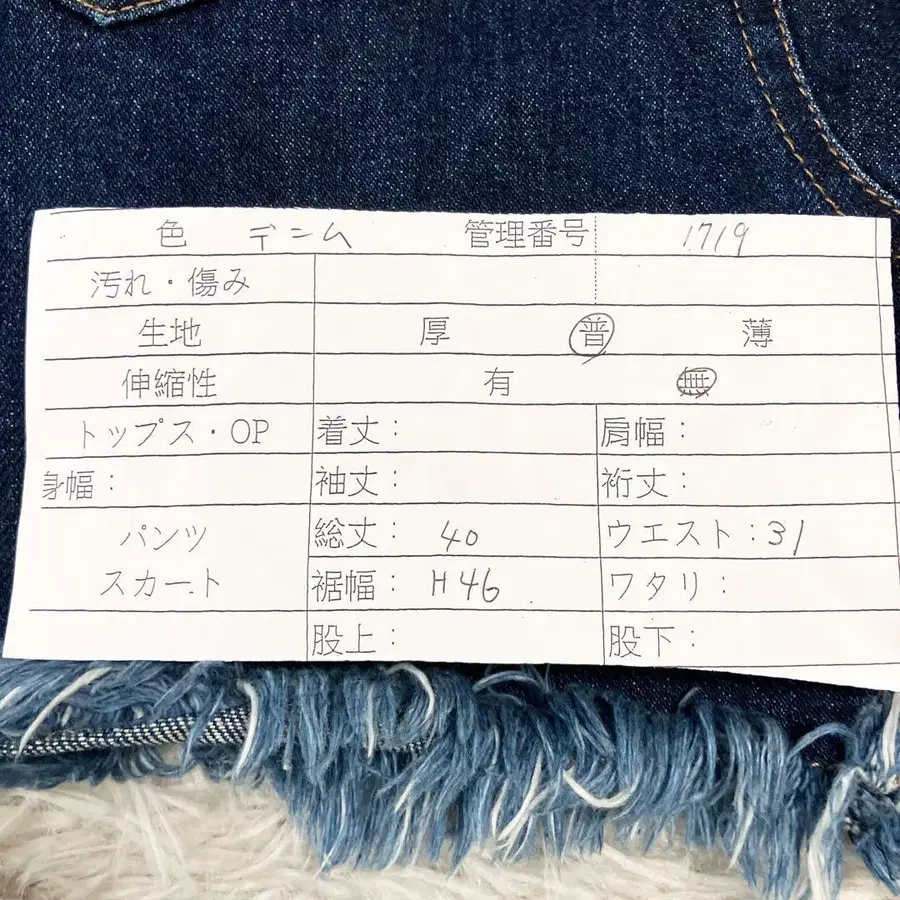 色 デニム 管理番号 1719
汚れ・傷み
生地 厚 普 薄
伸縮性 有 無
トップス・OP 着丈： 肩幅：
身幅： 袖丈： 裄丈：
パンツ 総丈： 40 ウエスト：31
スカート 裾幅： H46 ワタリ：
股上： 股下：